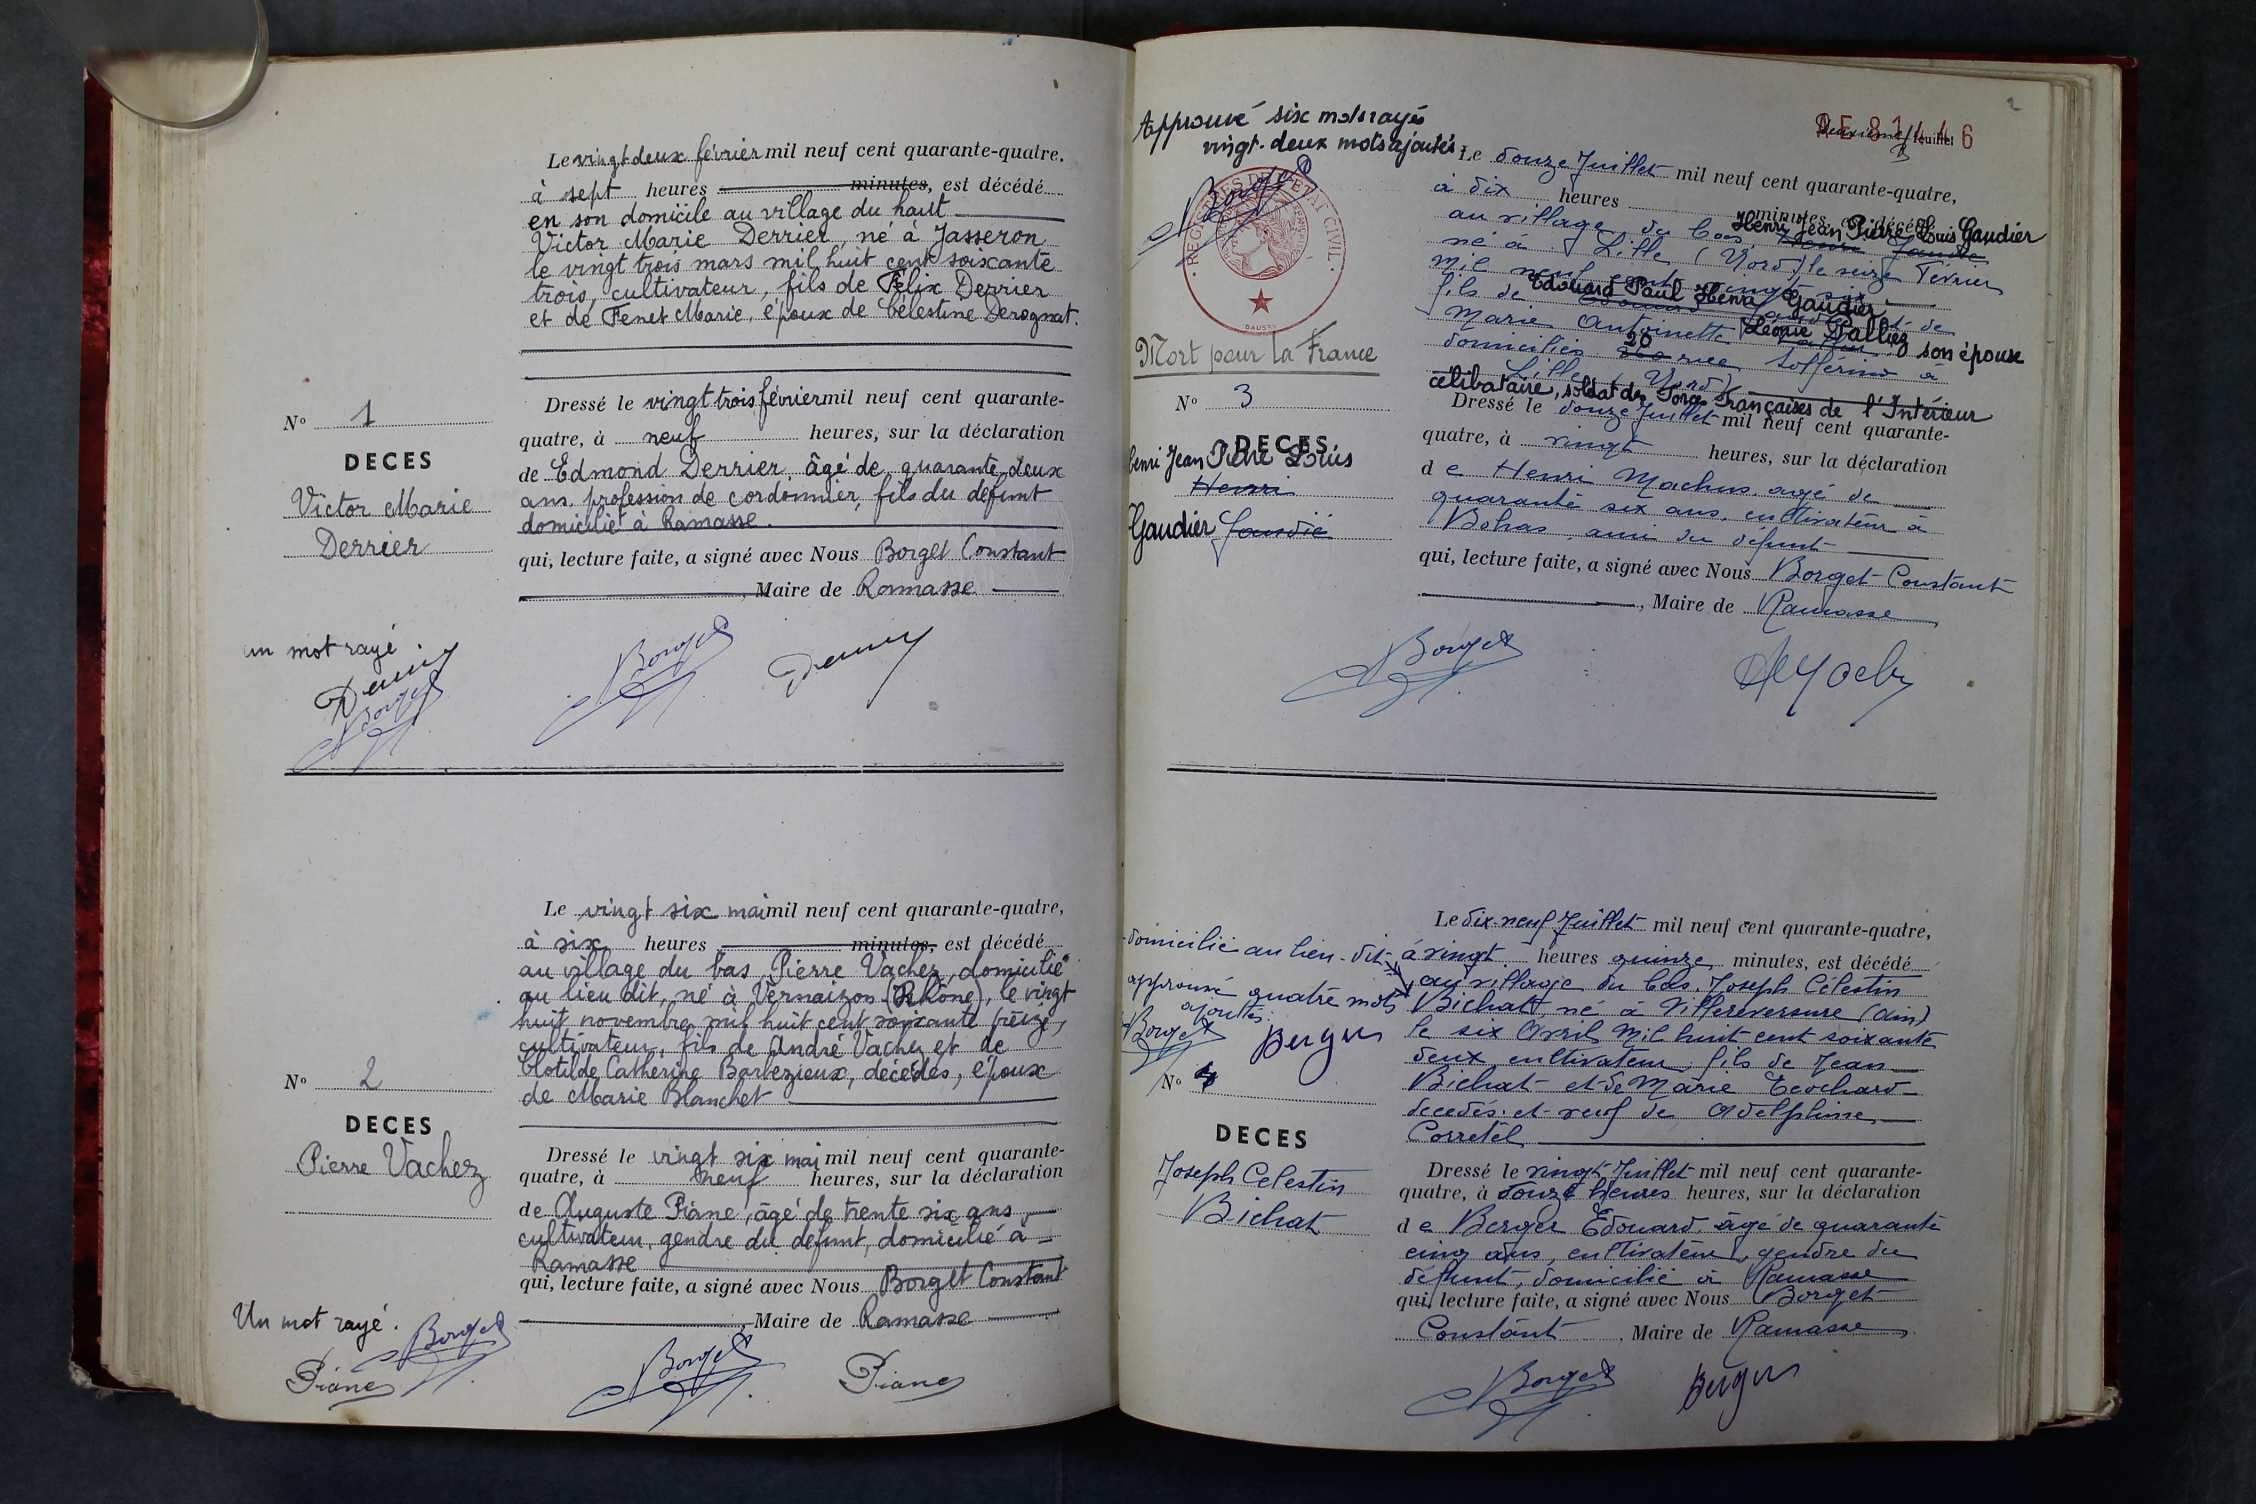 Le vingt deux février mil neuf cent quarante-quatre,
à sept heures minutes, est décédé
en son domicile au village du haut
Victor Marie Derrier, né à Jasseron
le vingt trois mars mil huit cent soixante
trois, cultivateur, fils de Félix Derrier
et de Fenet Marie, époux de Célestine Derognat.
N° 1
DECES
Victor Marie
Derrier
Dressé le vingt trois février mil neuf cent quarante-
quatre, à neuf heures, sur la déclaration
de Edmond Derrier, âgé de quarante-deux
ans, profession de cordonnier, fils du défunt
domicilié à Ramasse.
qui, lecture faite, a signé avec Nous Borget Constant
, Maire de Ramasse
un mot rayé
Borget
Borget
Le vingt six mai mil neuf cent quarante-quatre,
à six heures minutes, est décédé
au village du bas Pierre Vachez, domicilié
au lieu dit, né à Vernaizon (Rhône), le vingt
huit novembre mil huit cent soixante treize,
cultivateur, fils de André Vachez et de
Clotilde Catherine Barbezieux, décédés, époux
de Marie Blanchet
N° 2
DECES
Pierre Vachez
Dressé le vingt six mai mil neuf cent quarante-
quatre, à neuf heures, sur la déclaration
de Auguste Piane, âgé de trente six ans,
cultivateur, gendre du défunt, domicilié à
Ramasse
qui, lecture faite, a signé avec Nous Borget Constant
, Maire de Ramasse
Un mot rayé.
Borget
Piane
Borget
Piane
2
Deuxième feuillet
Approuvé six mots rayés
vingt-deux mots ajoutés.
Borget
REGISTRES DE L'ETAT CIVIL
Mort pour la France
N° 3
DECES
Henri Jean Pierre Louis
Henri
Gaudier
Le douze Juillet mil neuf cent quarante-quatre,
à dix heures minutes, est décédé
au village du bas, Henri Jean Pierre Louis Gaudier
né à Lille (Nord) le seize Février
mil neuf cent vingt six
fils de Edouard Paul Henri Gaudier et de
Marie Antoinette Léonie Dalliez son épouse
domiciliés 20 rue Solférino à
Lille (Nord)
célibataire, soldat des Forces Françaises de l'Intérieur
Dressé le douze Juillet mil neuf cent quarante-
quatre, à vingt heures, sur la déclaration
de Henri Machus, agé de
quarante six ans, cultivateur à
Bohas, ami du défunt
qui, lecture faite, a signé avec Nous Borget Constant
, Maire de Ramasse
Borget
Le dix-neuf Juillet mil neuf cent quarante-quatre,
à vingt heures quinze minutes, est décédé
au village du bas, Joseph Célestin
Bichat, né à Villereversure (Ain)
le six Avril mil huit cent soixante
deux cultivateur, fils de Jean
Bichat et de Marie
decedés et veuf de Adelphine
Corretel
domicilié au lieu-dit
approuvé quatre mots
ajoutés.
Borget
Berger
N° 4
DECES
Joseph Celestin
Bichat
Dressé le vingt Juillet mil neuf cent quarante-
quatre, à douze heures heures, sur la déclaration
de Berger Edouard, âgé de quarante
cinq ans, cultivateur, gendre du
défunt, domicilié à Ramasse
qui, lecture faite, a signé avec Nous Borget
Constant, Maire de Ramasse
Borget
Berger